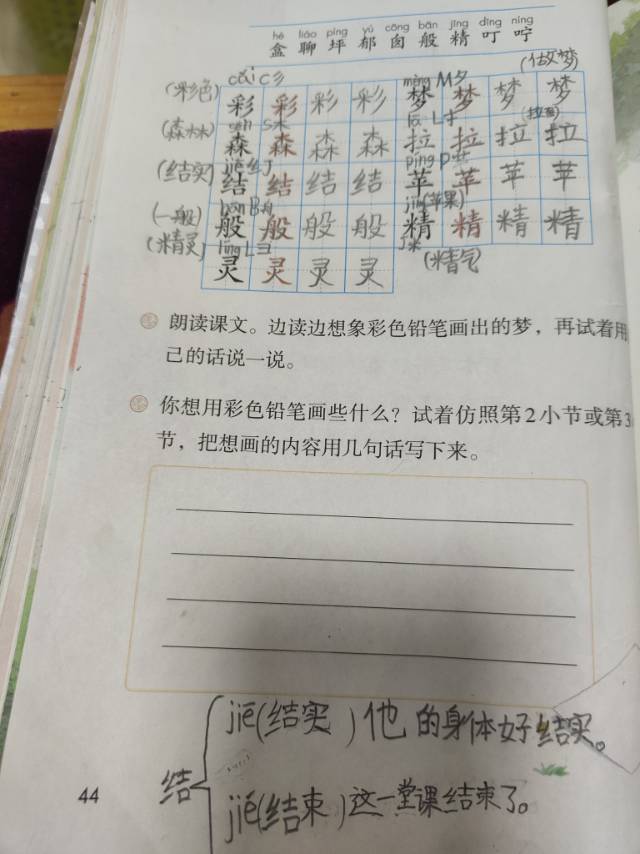 hé liáo píng yù cōng bān jīng dīng níng
盒 聊 坪 郁 囱 般 精 叮 咛
(做梦)
(彩色) cǎi C彡 mèng M夕
彩 彩 彩 彩 梦 梦 梦 梦
(森林) sēn S木 lā L扌
森 森 森 森 拉 拉 拉 拉
(结实) jiē 纟J píng P艹
结 结 结 结 苹 苹 苹 苹
(一般) bān B舟 jīn (苹果)
般 般 般 般 精 精 精 精
(精灵) líng L彐 J米 (精气
灵 灵 灵 灵
朗读课文。边读边想象彩色铅笔画出的梦，再试着用
己的话说一说。
你想用彩色铅笔画些什么？试着仿照第2小节或第3
节，把想画的内容用几句话写下来。
结
jiē(结实)他的身体好结实。
jié(结束)这一堂课结束了。
44